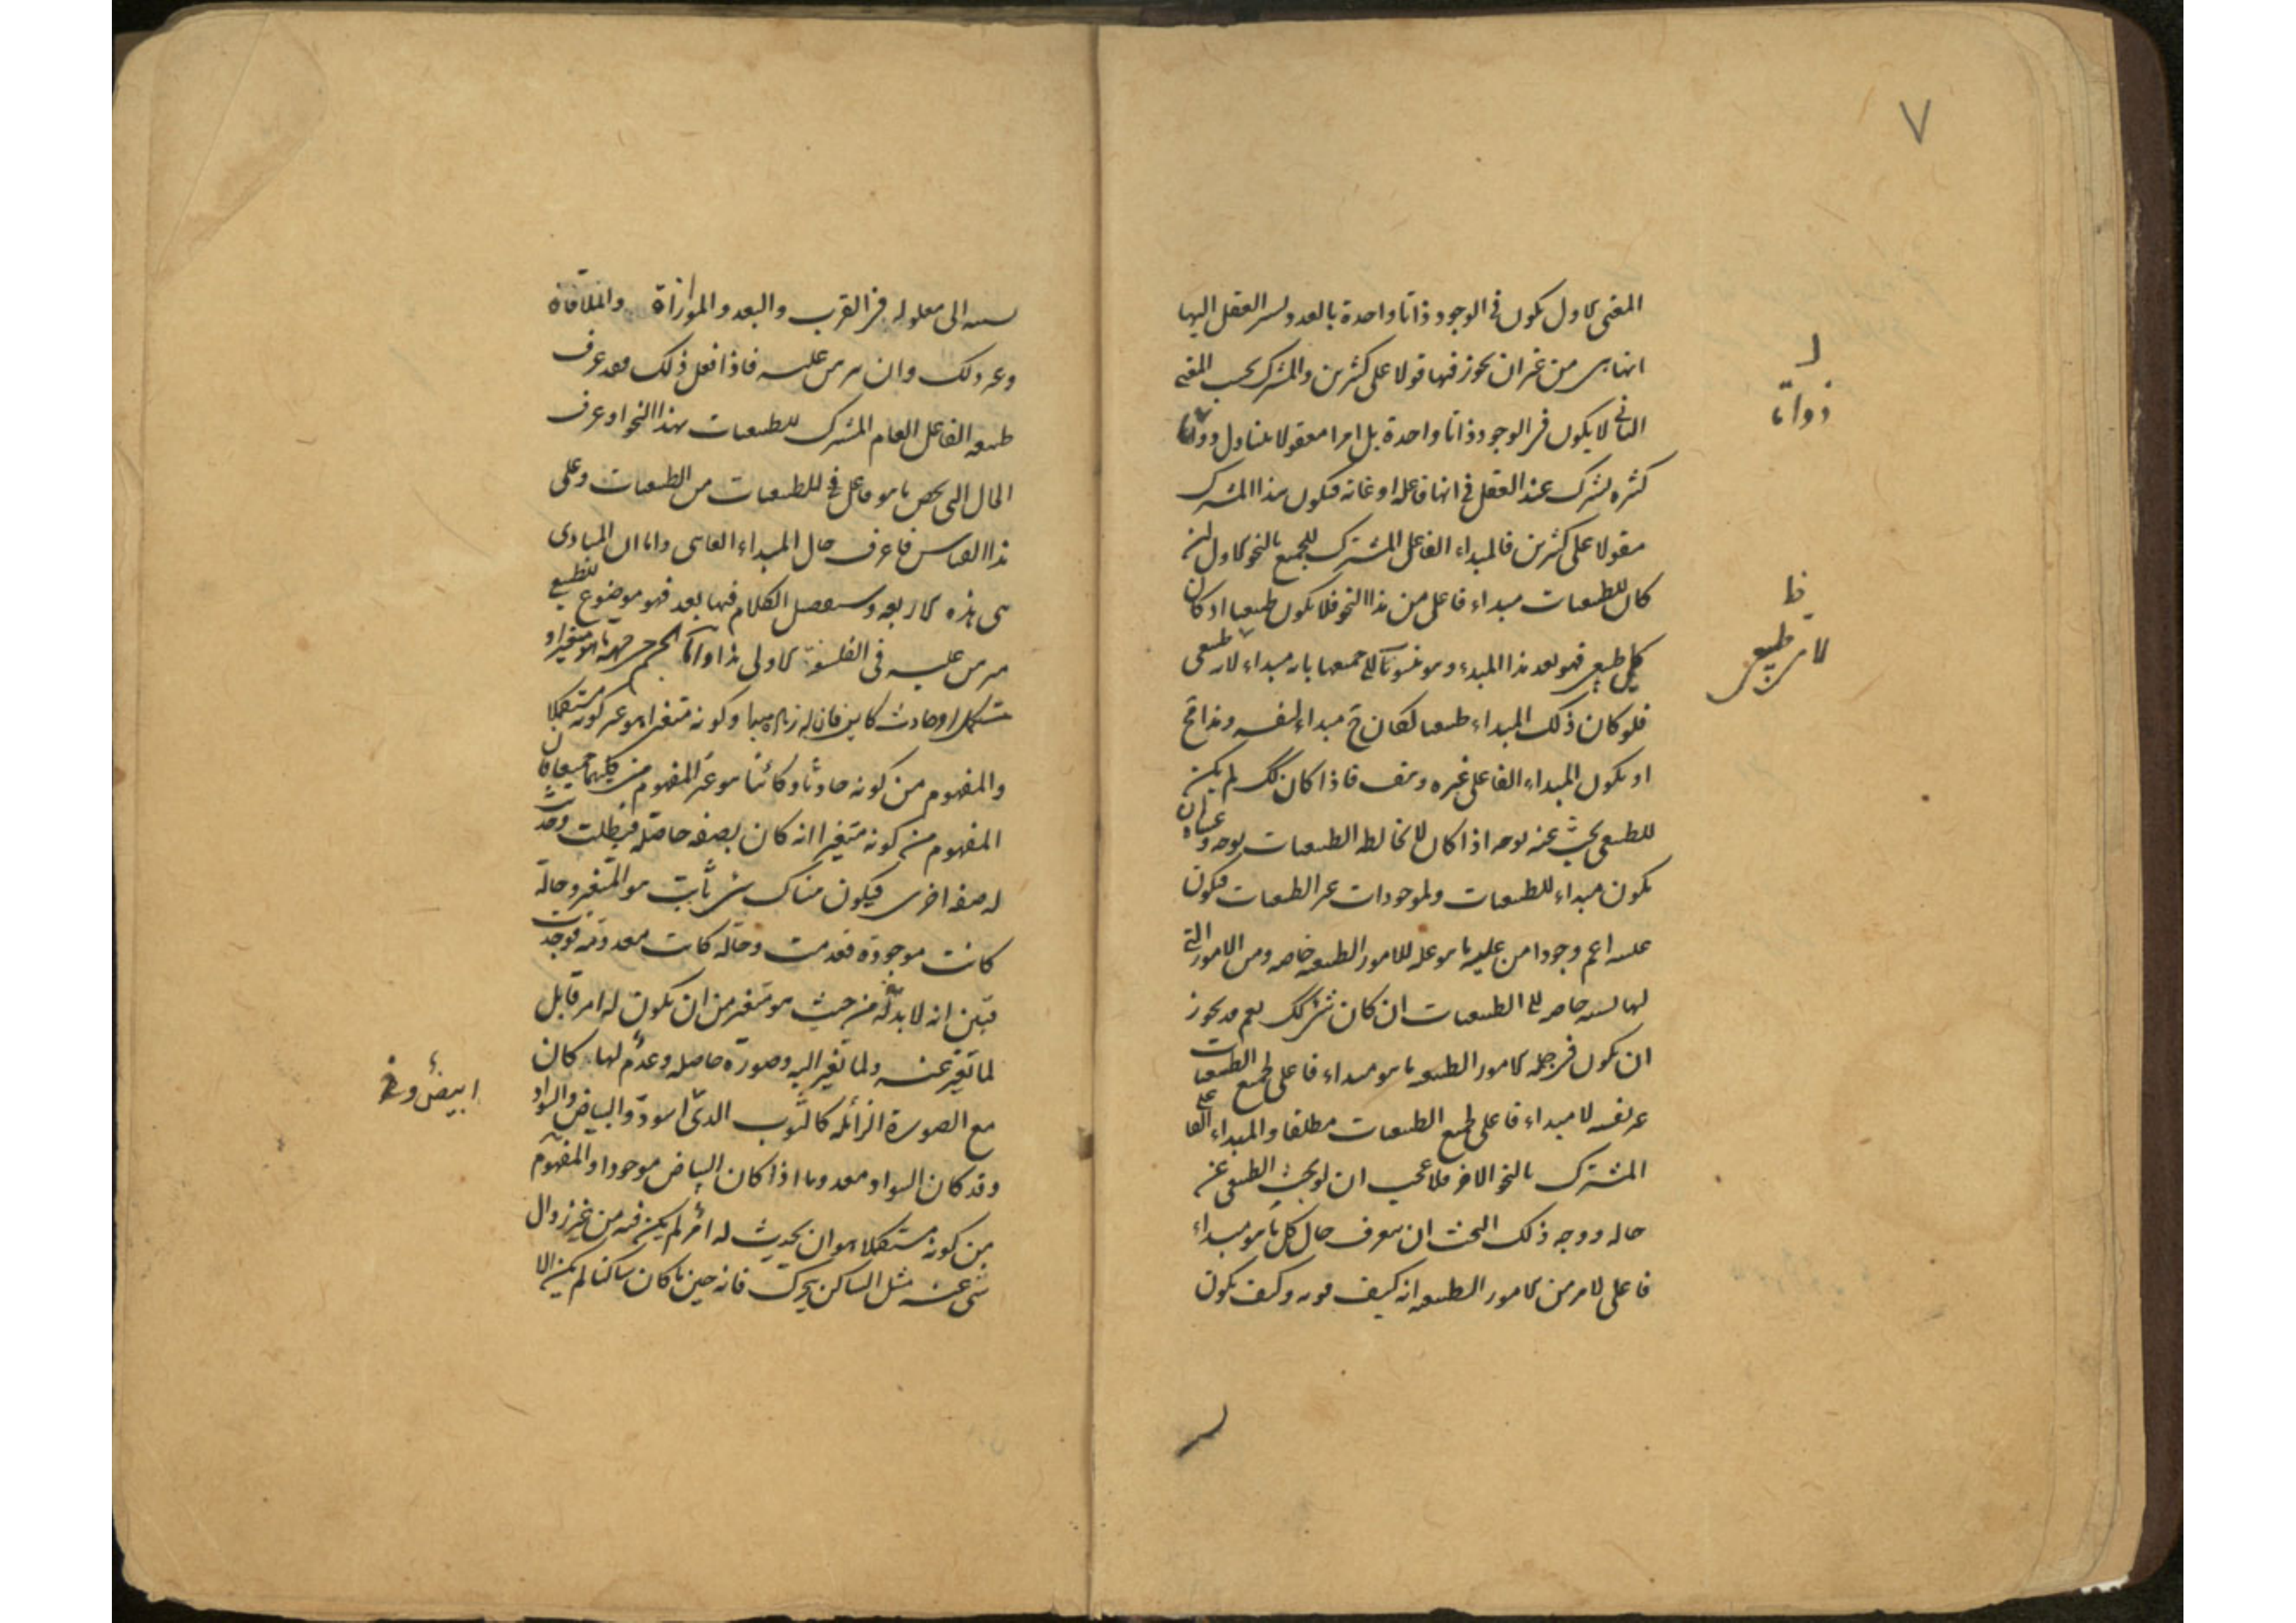 ٧
المعنى الاول يكون فى الوجود ذاتا واحدة بالعدد يشير العقل اليها
انها هى من غير ان يجوز فيها قولا على كثيرين والمشترك بحسب المعنى
الثانى لا يكون فى الوجود ذاتا واحدة بل امرا معقولا يتناول ذواتا
كثيرة يشترك عند العقل فى انها فاعلة او غاية فيكون هذا المشترك
مقولا على كثيرين فالمبداء الفاعلى المشترك للجميع بالنحو الاول ان
كان للطبيعيات مبداء فاعلى من هذا النحو فلا يكون طبيعيا اذ كان
كل طبيعى فهو بعد هذا المبداء وهو منسوب الى جميعها بانه مبداء لانه طبيعى
فلو كان ذلك المبداء طبيعيا لكان ح مبداء لنفسه وهذا مح
او يكون المبداء الفاعلى غيره وهف فاذا كان كك لم يكن
للطبيعى بحث عنه بوجه اذا كان لا يخالط الطبيعيات بوجه وعساه ان
يكون مبداء للطبيعيات ولموجودات غير الطبيعيات فيكون
عليته اعم وجودا من علية ما هو علة للامور الطبيعية خاصة ومن الامور التى
لها نسبة خاصة الى الطبيعيات ان كان شئ كك نعم قد يجوز
ان يكون فى جملة الامور الطبيعية ما هو مبداء فاعلى لجميع الطبيعيات
غير نفسه لا مبداء فاعلى لجميع الطبيعيات مطلقا والمبداء الفاعلى
المشترك بالنحو الاخر فلا عجب ان لو بحث الطبيعى عن
حاله ووجه ذلك البحث ان يتعرف حال كل ما هو مبداء
فاعلى لامر من الامور الطبيعية انه كيف قوته وكيف يكون
ذواتا
ظ
لامر طبيعى
نسبته الى معلوله فى القرب والبعد والموازاة والملاقاة
وغير ذلك وان يبرهن عليه فاذا فعل ذلك فقد عرف
طبيعة الفاعل العام المشترك للطبيعيات بهذا النحو اذ عرف
الحال التى يخص ما هو فاعل فى الطبيعيات من الطبيعيات وعلى
هذا القياس فاعرف حال المبداء الغائى واما ان المبادى
هى هذه الاربعة وسنفصل الكلام فيها بعد فهو موضوع للطبيعى
مبرهن عليه فى الفلسفة الاولى هذا واما الجسم من جهة ما هو متغير او
مستكمل او حادث كاين فان له زيادة مبدا وكونه متغيرا هو غير كونه مستكملا
والمفهوم من كونه حادثا وكائنا هو غير المفهوم من كليهما جميعا فان
المفهوم من كونه متغيرا انه كان بصفة حاصلة فبطلت وحدث
له صفة اخرى فيكون هناك شئ ثابت هو المتغير وحالة
كانت موجودة فعدمت وحالة كانت معدومة فوجدت
فبين انه لا بد له من حيث هو متغير من ان يكون له امر قابل
لما تغير عنه ولما تغير اليه وصورة حاصلة وعدم لها كان
مع الصورة الزائلة كالثوب الذى اسود والبياض والسواد
وقد كان السواد معدوما اذا كان البياض موجودا والمفهوم
من كونه مستكملا هو ان يحدث له امر لم يكن فيه من غير زوال
شئ عنه مثل الساكن يتحرك فانه حين ما كان ساكنا لم يكن الا
ابيض و